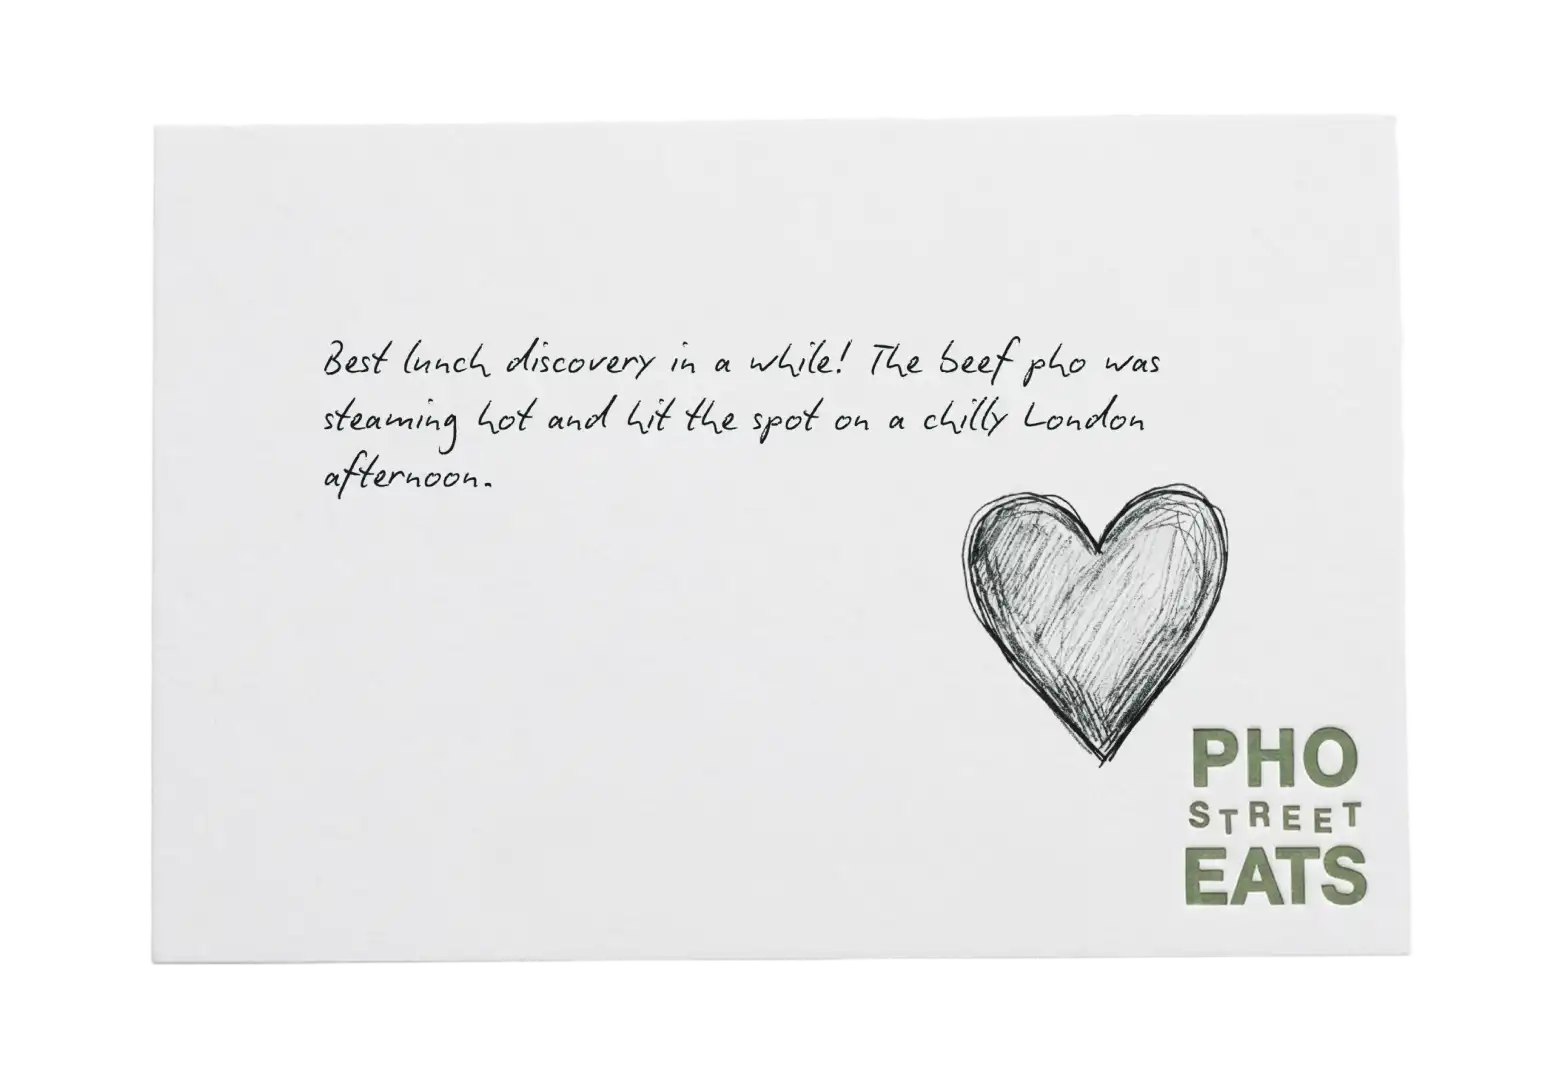 Best lunch discovery in a while! The beef pho was
steaming hot and hit the spot on a chilly London
afternoon.
PHO
STREET
EATS